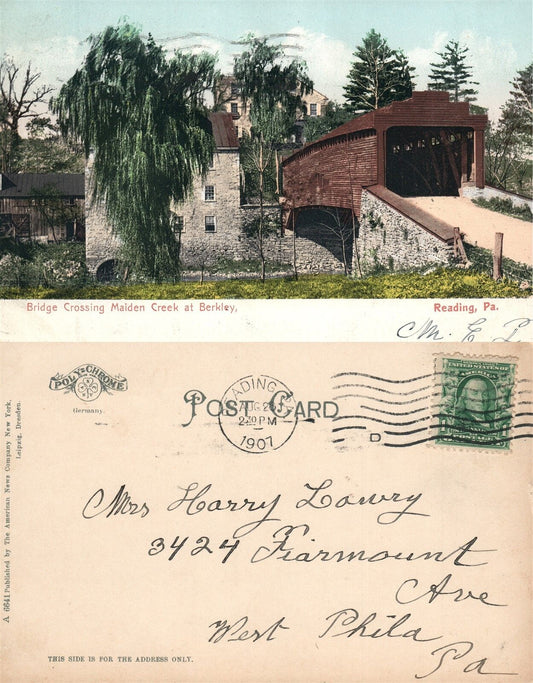 Bridge Crossing Maiden Creek at Berkley, Reading, Pa.
M. E. L
POLY CHROME
Germany.
POST CARD
READING
AUG 26
2-30 PM
1907
D
UNITED STATES OF AMERICA
A 6641 Published by The American News Company New York.
Leipzig, Dresden.
Mrs Harry Lowry
3424 Fiarmount
Ave
West Phila
Pa
THIS SIDE IS FOR THE ADDRESS ONLY.